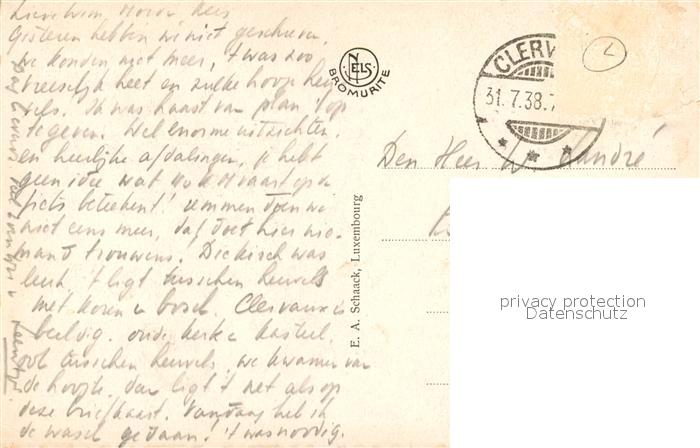 Gisteren hebben we niet geschreven,
we konden niet meer, 't was zoo
vreeselijk heet en zulke hooge heu
vels. Ik was haast van plan 't op
te geven. Wel enorme uitzichten,
en heerlijke afdalingen, je hebt
geen idee wat op de
fiets beteekent! zwemmen doen we
niet eens meer, dat doet hier nie-
mand trouwens! Diekirch was
leuk, 't ligt tusschen heuvels
met koren en bosch. Clervaux is
beeldig. oude kerk en kasteel.
ook tusschen heuvels. we kwamen van
de hoogte, dan ligt 't net als op
deze briefkaart. Vandaag heb ik
de wasch gedaan! 't was noodig.
NELS
BROMURITE
CLERV
31.7.38.
L
Den Heer W. Landré
E. A. Schaack, Luxembourg
privacy protection
Datenschutz